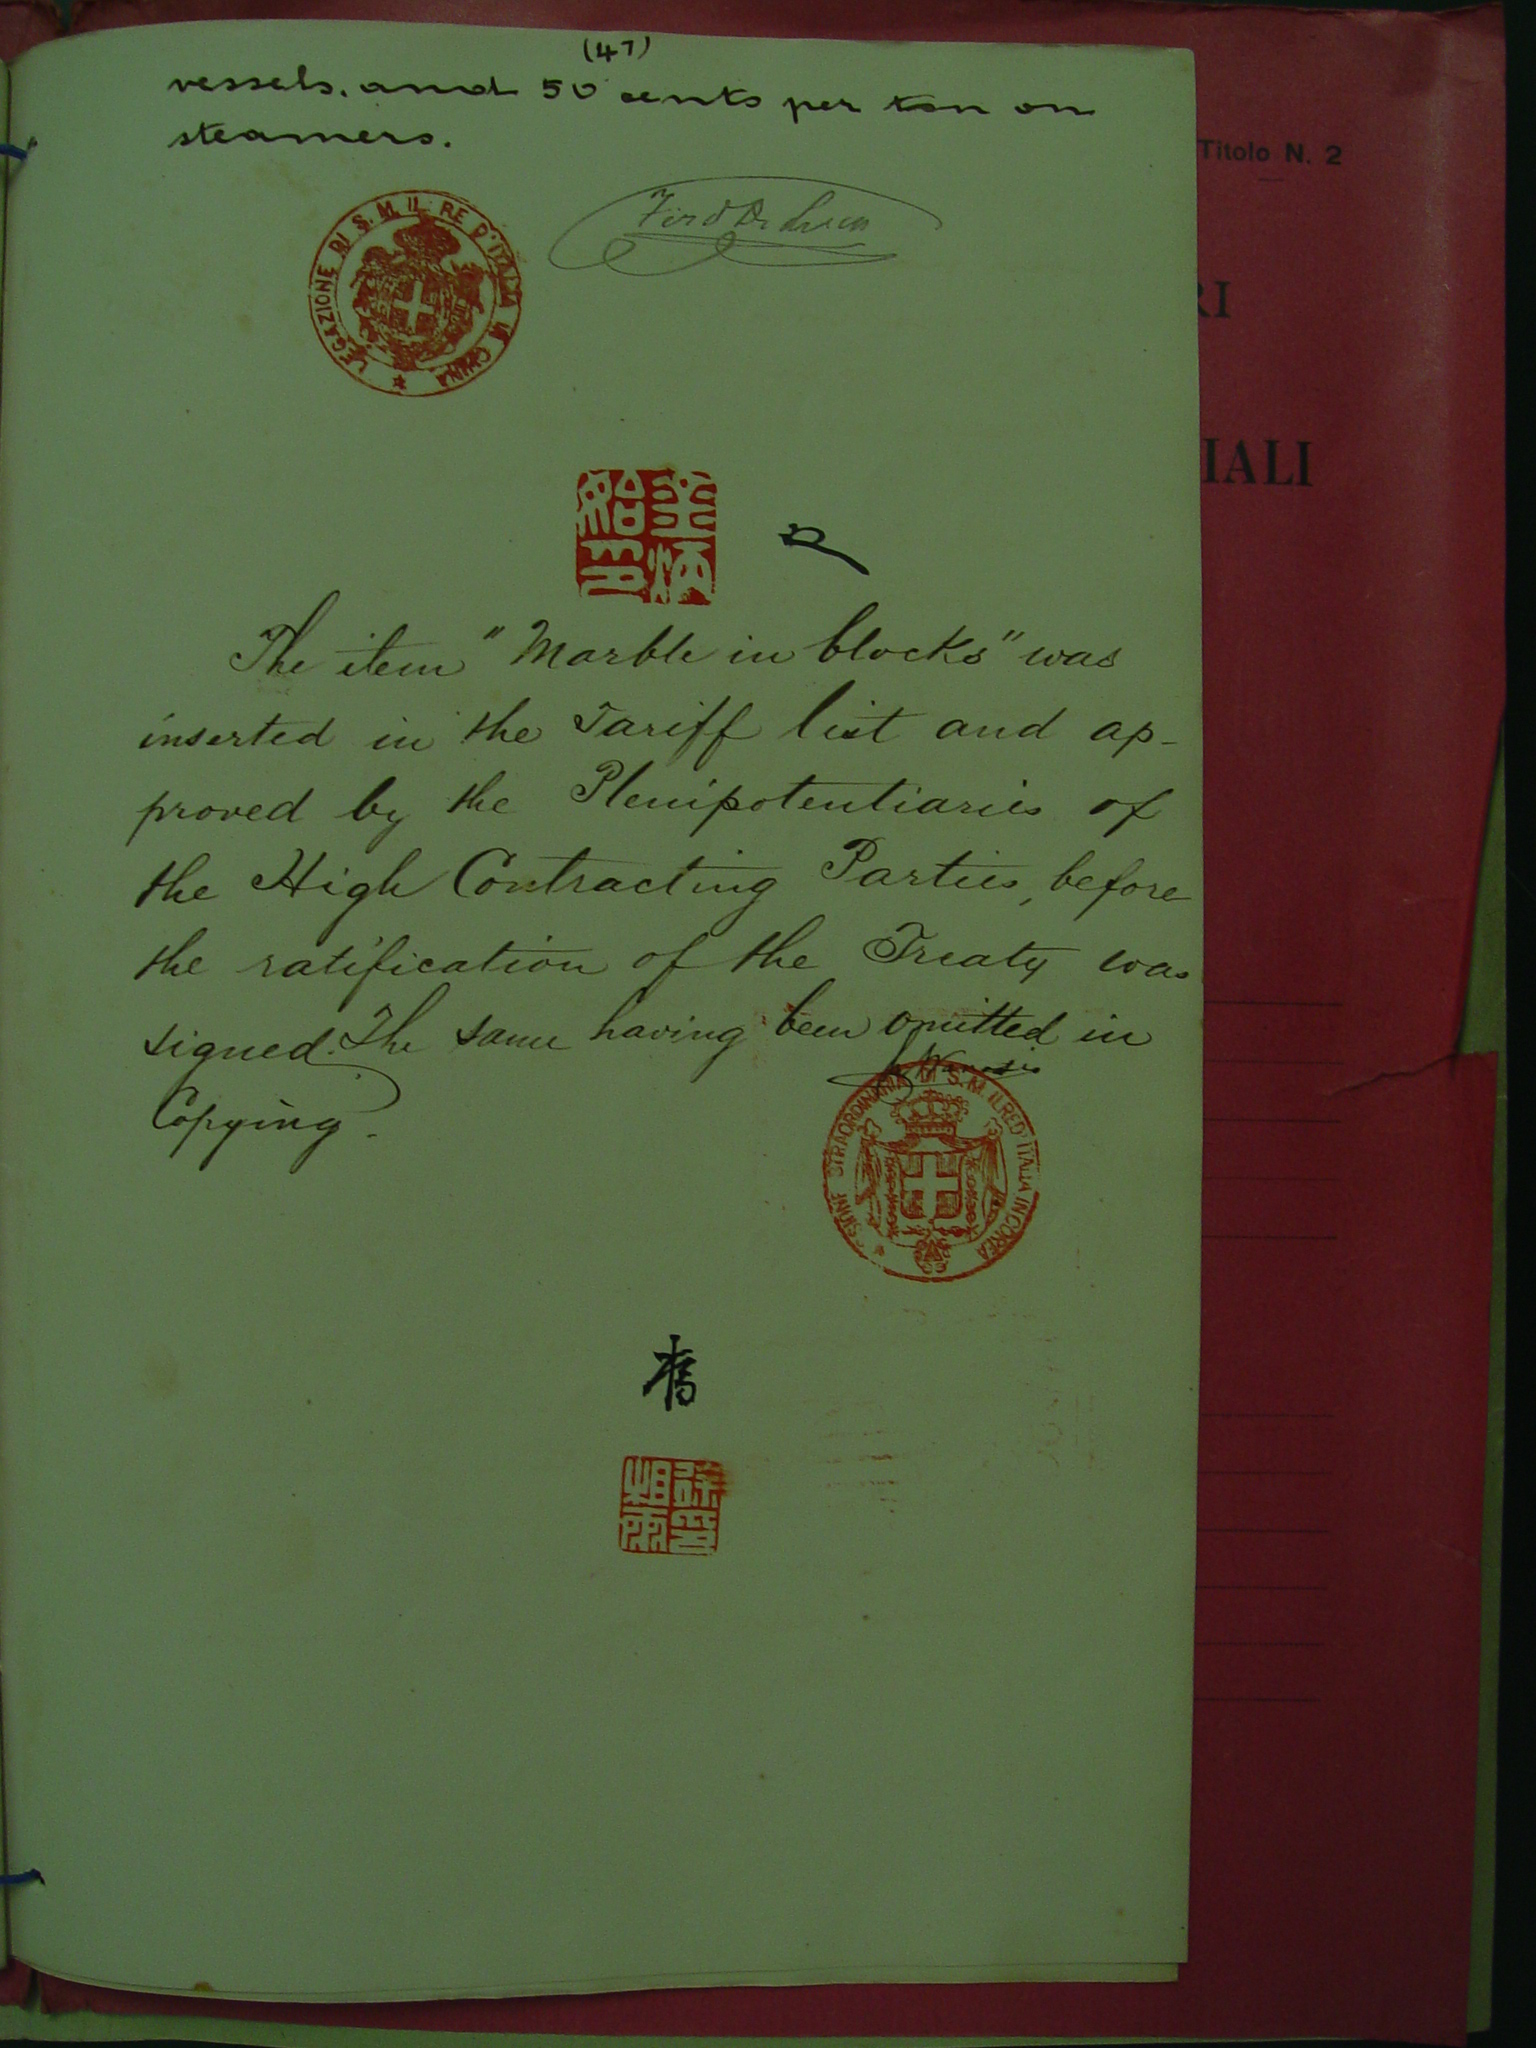 (47)
vessels, and 50 cents per ton on
steamers.
LEGAZIONE DI S. M. IL RE D'ITALIA IN CHINA
Titolo N. 2
RI
IALI
The item "Marble in blocks" was
inserted in the Tariff list and ap-
proved by the Plenipotentiaries of
the High Contracting Parties, before
the ratification of the Treaty was
signed. The same having been omitted in
Copying.
STRAORDINARIA DI S. M. IL RE D'ITALIA IN COREA